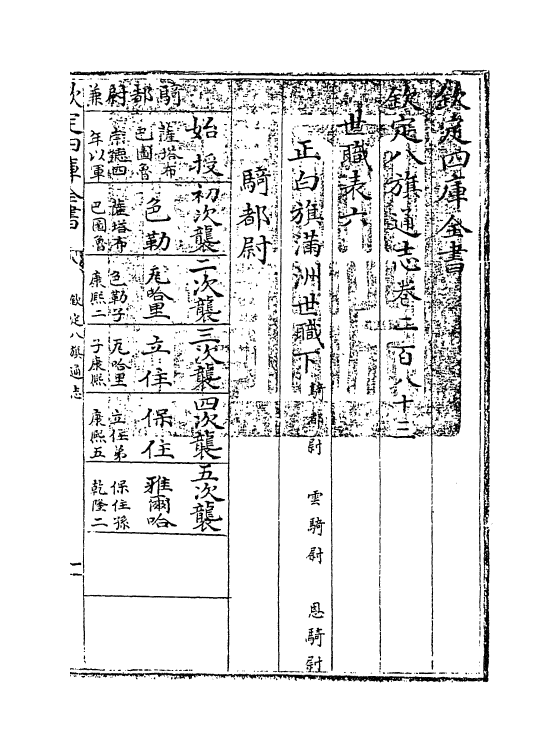 欽定四庫全書
欽定八旗通志卷二百八十二
世職表六
正白旗滿洲世職下 騎都尉 雲騎尉 恩騎尉
騎都尉
始授 初次襲 二次襲 三次襲 四次襲 五次襲
薩塔布巴圖魯 色勒 尼哈里 立住 保住 雅爾哈
崇德四 薩塔布 色勒子 尼哈里 立住弟 保住孫
年以軍 巴圖魯 康熙二 子康熙 康熙五 乾隆二
騎都尉兼
欽定四庫全書 欽定八旗通志 一